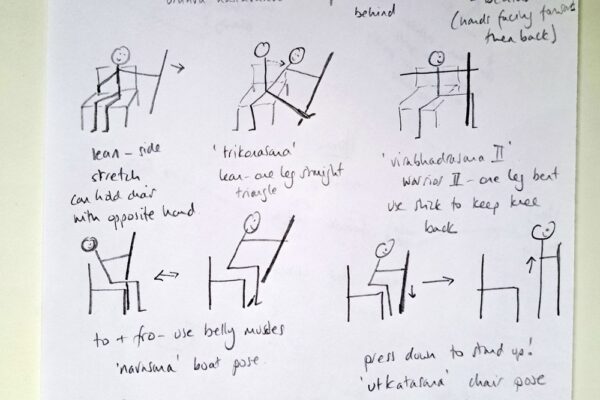 behind
(hands facing forward
then back)
lean – side
stretch
can hold chair
with opposite hand
'trikonasana'
lean – one leg straight
triangle
'virabhadrasana II'
warrior II – one leg bent
use stick to keep knee
back
to + fro – use belly muscles
'navasana' boat pose.
press down to stand up!
'utkatasana' chair pose